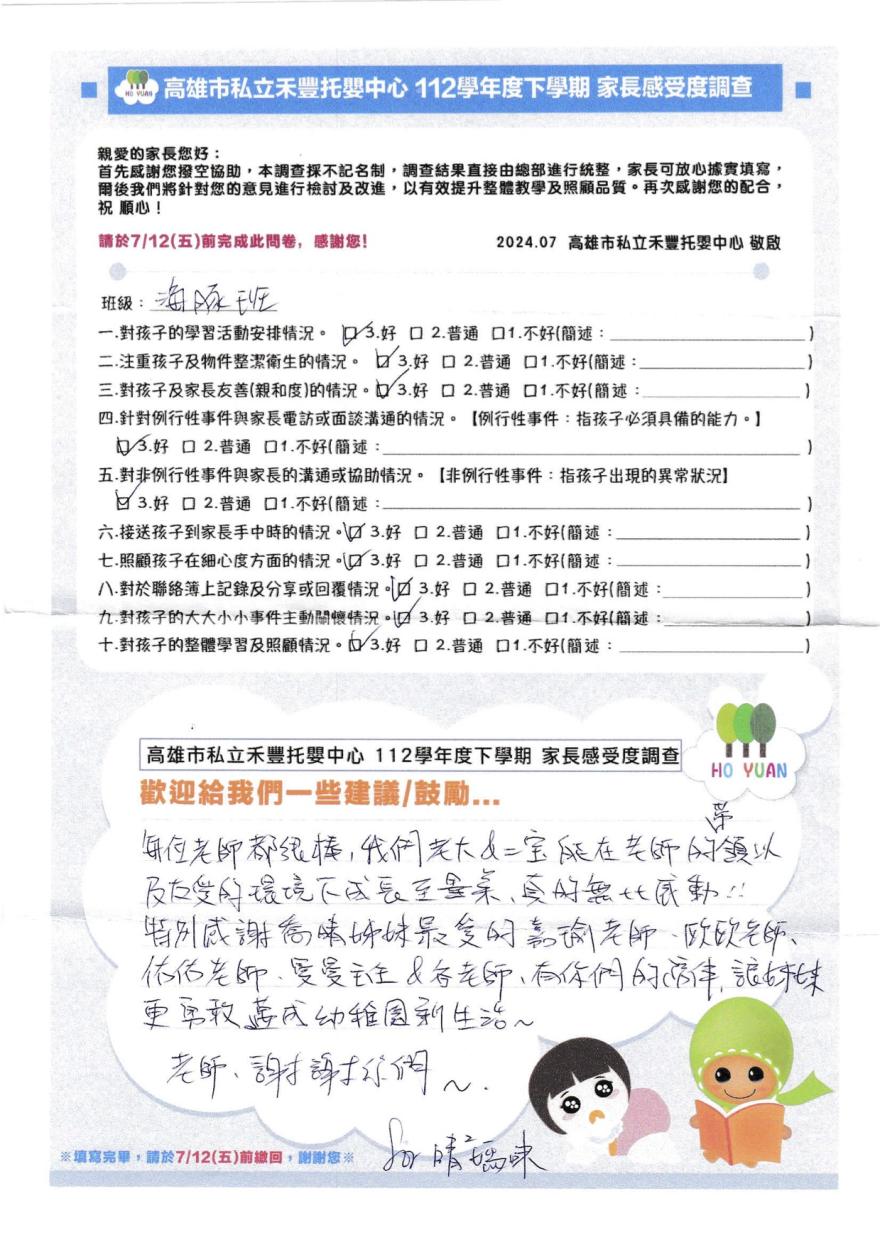 HO YUAN
高雄市私立禾豐托嬰中心 112學年度下學期 家長感受度調查
親愛的家長您好：
首先感謝您撥空協助，本調查採不記名制，調查結果直接由總部進行統整，家長可放心據實填寫，
爾後我們將針對您的意見進行檢討及改進，以有效提升整體教學及照顧品質。再次感謝您的配合，
祝 順心！
請於7/12(五)前完成此問卷，感謝您！ 2024.07 高雄市私立禾豐托嬰中心 敬啟
班級：海豚班
一.對孩子的學習活動安排情況。 ☑3.好 □ 2.普通 □1.不好(簡述：________)
二.注重孩子及物件整潔衛生的情況。 ☑3.好 □ 2.普通 □1.不好(簡述:________)
三.對孩子及家長友善(親和度)的情況。☑3.好 □ 2.普通 □1.不好(簡述:________)
四.針對例行性事件與家長電訪或面談溝通的情況。【例行性事件：指孩子必須具備的能力。】
☑3.好 □ 2.普通 □1.不好(簡述：________)
五.對非例行性事件與家長的溝通或協助情況。【非例行性事件：指孩子出現的異常狀況】
☑ 3.好 □ 2.普通 □1.不好(簡述：________)
六.接送孩子到家長手中時的情況。☑3.好 □ 2.普通 □1.不好(簡述：________)
七.照顧孩子在細心度方面的情況。☑3.好 □ 2.普通 □1.不好(簡述：________)
八.對於聯絡簿上記錄及分享或回覆情況。☑ 3.好 □ 2.普通 □1.不好(簡述：________)
九.對孩子的大大小小事件主動關懷情況。☑ 3.好 □ 2.普通 □1.不好(簡述：________)
十.對孩子的整體學習及照顧情況。☑3.好 □ 2.普通 □1.不好(簡述：________)
高雄市私立禾豐托嬰中心 112學年度下學期 家長感受度調查
HO YUAN
歡迎給我們一些建議/鼓勵...
每位老師都很棒,我們老大&二宝能在老師的帶領以
及友愛的環境下成長至畢業、真的無比感動!!
特別感謝 晴姊妹最愛的嘉瑜老師、欧欧老師、
依依老師、曼曼主任&各老師、有你們的陪伴,讓姊妹
更勇敢 成幼稚園新生活~
老師、謝謝你們~.
晴媽咪
※填寫完畢，請於7/12(五)前繳回，謝謝您※